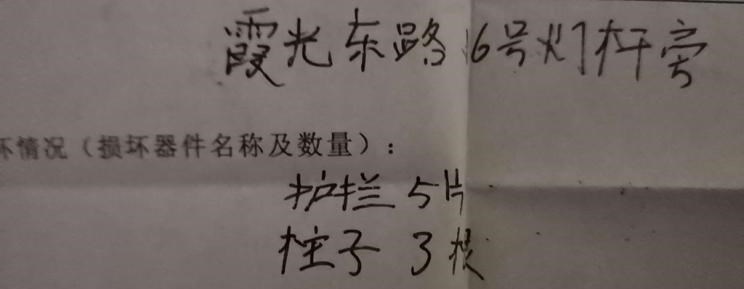 霞光东路16号灯杆旁
坏情况（损坏器件名称及数量）：
护栏 5片
柱子 3根